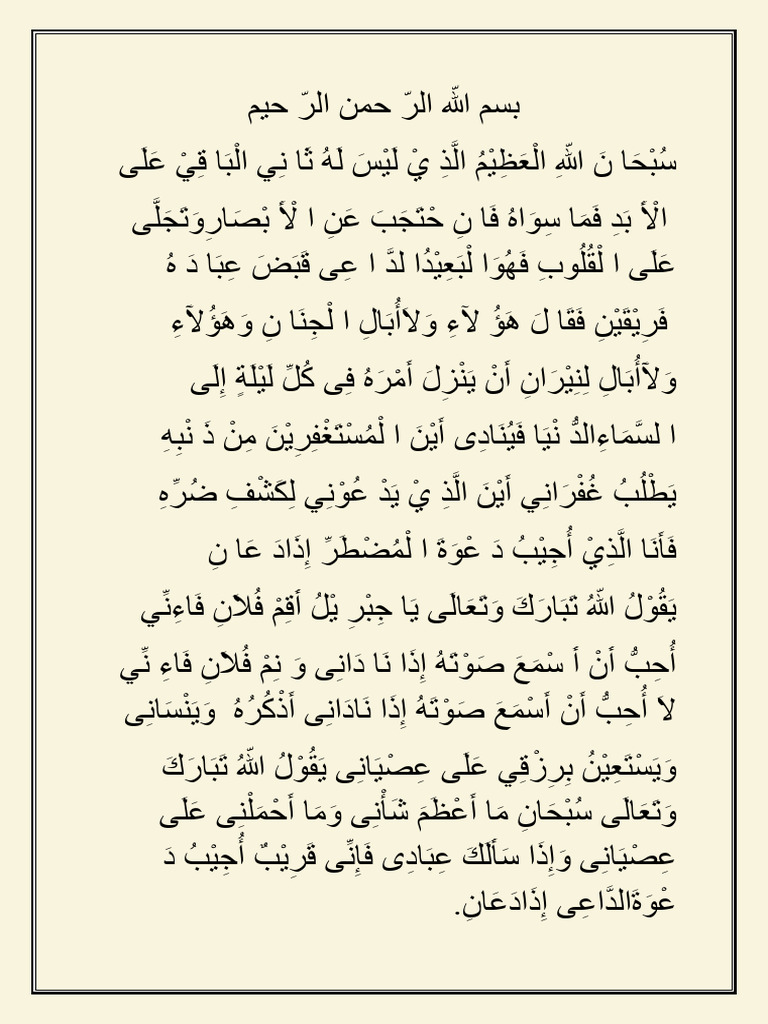 بسم الله الرّ حمن الرّ حيم
سُبْحَا نَ اللهِ الْعَظِيْمُ الَّذِ يْ لَيْسَ لَهُ ثَا نِي الْبَا قِيْ عَلَى
الْأَ بَدِ فَمَا سِوَاهُ فَا نِ حْتَجَبَ عَنِ ا لْأَ بْصَارِوَتَجَلَّى
عَلَى ا لْقُلُوبِ فَهُوَا لْبَعِيْدُا لدَّ ا عِى قَبَضَ عِبَا دَ هُ
فَرِيْقَيْنِ فَقَا لَ هَؤُ لآءِ وَلاَأُبَالِ ا لْجِنَا نِ وَهَؤُلآءِ
وَلآأُبَالِ لِنِيْرَانِ أَنْ يَنْزِلَ أَمْرَهُ فِى كُلِّ لَيْلَةٍ إِلَى
ا لسَّمَاءِالدُّ نْيَا فَيُنَادِى أَيْنَ ا لْمُسْتَغْفِرِيْنَ مِنْ ذَ نْبِهِ
يَطْلُبُ غُفْرَانِي أَيْنَ الَّذِ يْ يَدْ عُوْنِي لِكَشْفِ ضُرِّهِ
فَأَنَا الَّذِيْ أُجِيْبُ دَ عْوَةَ ا لْمُضْطَرِّ إِذَادَ عَا نِ
يَقُوْلُ اللهُ تَبَارَكَ وَتَعَالَى يَا جِبْرِ يْلُ أَقِمْ فُلاَنِ فَاءِنِّي
أُحِبُّ أَنْ أَ سْمَعَ صَوْتَهُ إِذَا نَا دَانِى وَ نِمْ فُلاَنِ فَاءِ نِّي
لاَ أُحِبُّ أَنْ أَسْمَعَ صَوْتَهُ إِذَا نَادَانِى أَذْكُرُهُ وَيَنْسَانِى
وَيَسْتَعِيْنُ بِرِزْقِي عَلَى عِصْيَانِى يَقُوْلُ اللهُ تَبَارَكَ
وَتَعَالَى سُبْحَانِ مَا أَعْظَمَ شَأْنِى وَمَا أَحْمَلْنِى عَلَى
عِصْيَانِى وَإِذَا سَأَلَكَ عِبَادِى فَإِنِّى قَرِيْبٌ أُجِيْبُ دَ
عْوَةَالدَّاعِى إِذَادَعَانِ.